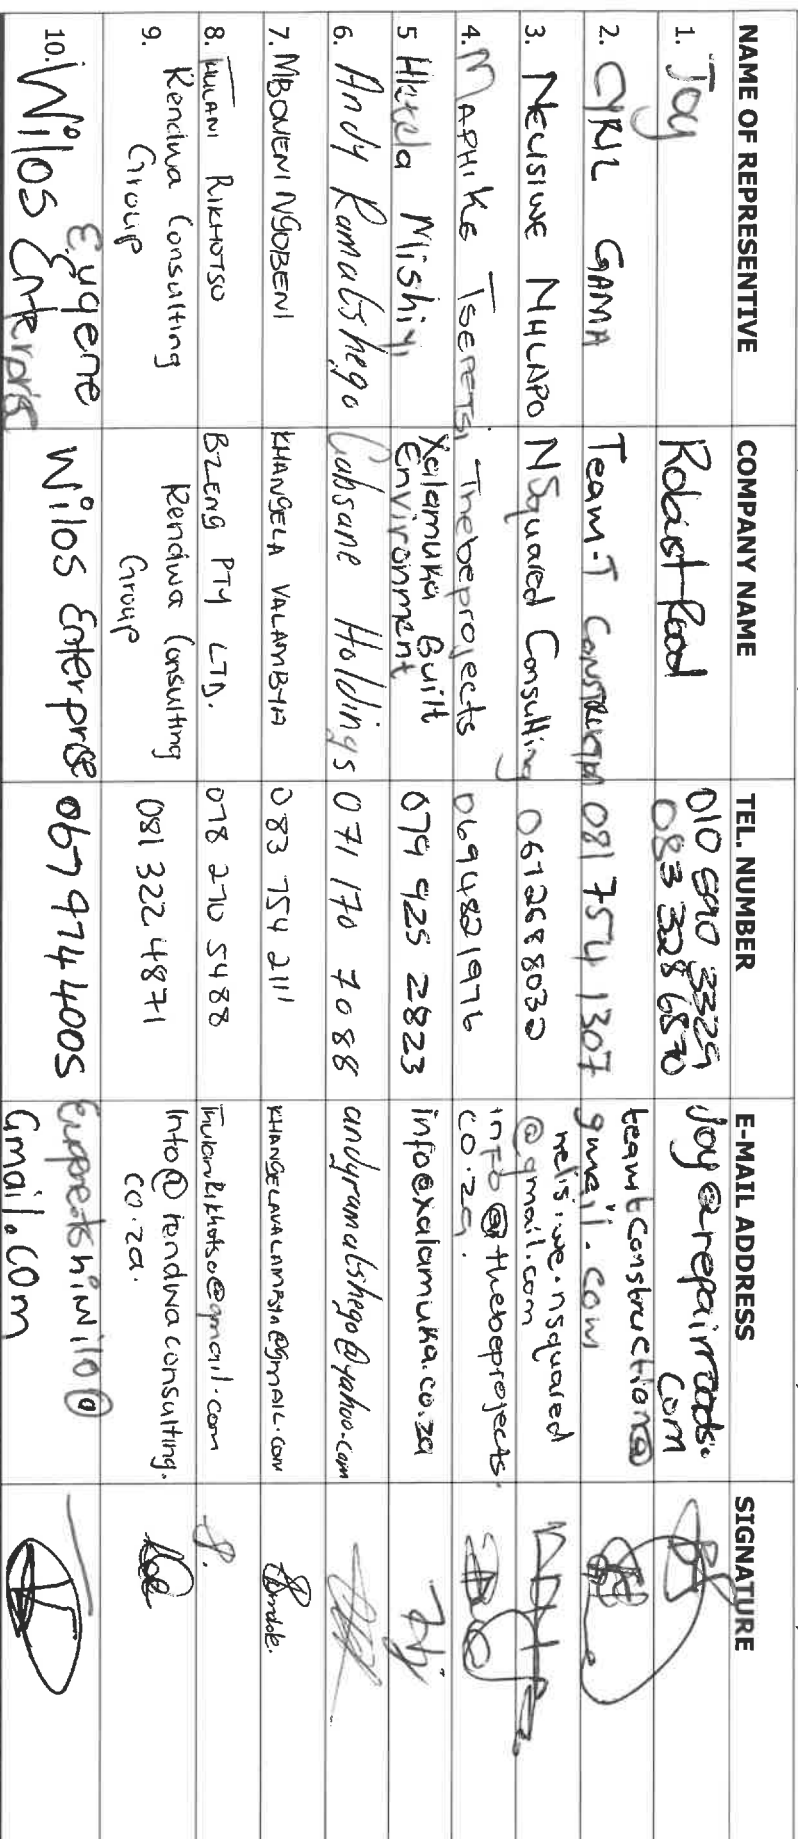 NAME OF REPRESENTIVE COMPANY NAME TEL. NUMBER E-MAIL ADDRESS SIGNATURE
1. Joy Robust Road 010 590 3329 joy@repairroads.
083 328 6570 com
2. CYRIL GAMA Team-T 081 754 1307 teamtconstruction@
gmail.com
3. NELISIWE NHLAPO NSquared Consulting 0672688030 nelisiwe.nsquared
@gmail.com
4. MAPHIKE TSEPETSI Thebeprojects 0694821976 info@thebeprojects.
co.za.
5 Hletela Mishiyi Xalamuka Built 079 925 2823 info@xalamuka.co.za
Environment
6. Andy Ramatshego Gabsane Holdings 071 170 7088 andyramatshego@yahoo.com
7. MBONENI NGOBENI KHANGELA VALAMBYA 083 754 2111 KHANGELAVALAMBYA@GMAIL.COM
8. THULANI RIKHOTSO BZENG PTY LTD. 078 270 5488 thulanirikhotso@gmail.com
9. Rendwa Consulting Rendwa Consulting 081 322 4871 Info@rendwaconsulting.
Group Group co.za.
10. Eugene
Wilos Enterprise Wilos Enterprise 0679744005 Eugenetshiwilo@
Gmail.com